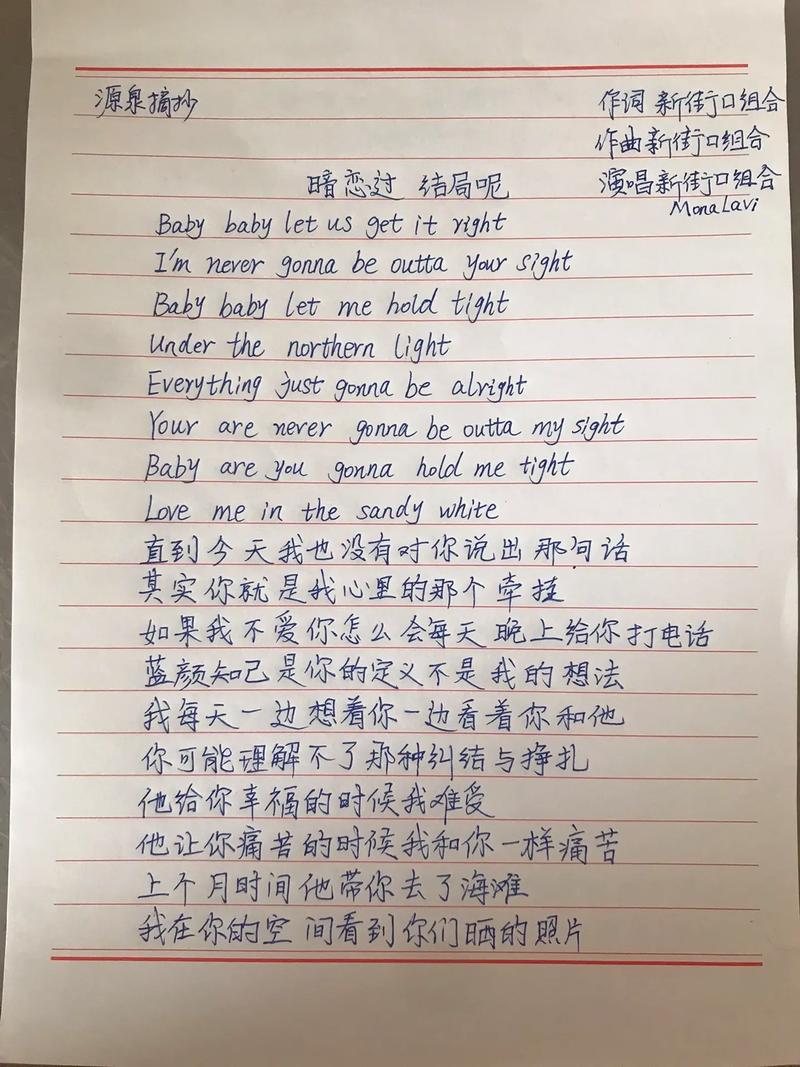 源泉摘抄
作词 新街口组合
作曲新街口组合
演唱新街口组合
MonaLavi
暗恋过 结局呢
Baby baby let us get it right
I'm never gonna be outta your sight
Baby baby let me hold tight
Under the northern light
Everything just gonna be alright
Your are never gonna be outta my sight
Baby are you gonna hold me tight
Love me in the sandy white
直到今天我也没有对你说出那句话
其实你就是我心里的那个牵挂
如果我不爱你怎么会每天晚上给你打电话
蓝颜知己是你的定义不是我的想法
我每天一边想着你一边看着你和他
你可能理解不了那种纠结与挣扎
他给你幸福的时候我难受
他让你痛苦的时候我和你一样痛苦
上个月时间他带你去了海滩
我在你的空间看到你们晒的照片